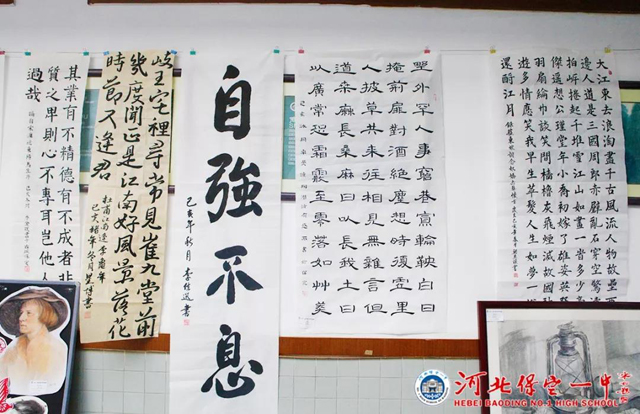 其業有不精德有不成者非
質之卑則心不專耳豈他人
過哉
岐王宅裡尋常見崔九堂前
幾度聞正是江南好風景落花
時節又逢君
杜甫江南逢李龜年
自強不息
己亥年秋月
埜外罕人事窮巷寡輪鞅白日
掩荊扉對酒絕塵想時復墟里
人披草共來往相見無雜言但
道桑麻長桑麻日以長我土日
以廣常恐霜霰至零落如草莽
大江東去浪淘盡千古風流人物故壘西
邊人道是三國周郎赤壁亂石穿空驚濤
拍岸捲起千堆雪江山如畫一時多少豪
傑遙想公瑾當年小喬初嫁了雄姿英發
羽扇綸巾談笑間檣櫓灰飛煙滅故國神
遊多情應笑我早生華髮人生如夢一樽
還酹江月
河北保定一中
HEBEI BAODING NO.1 HIGH SCHOOL